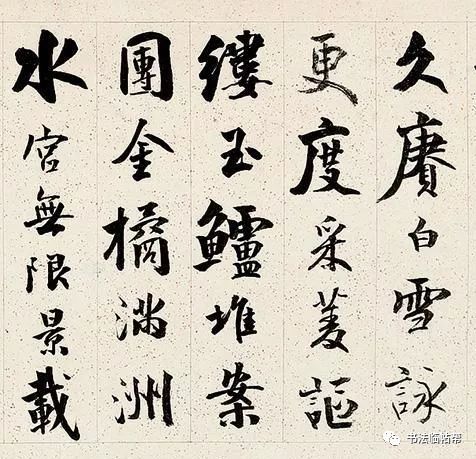 久賡白雪詠
更度采菱謳
縷玉鱸堆案
團金橘滿洲
水宮無限景
載
书法临帖帮